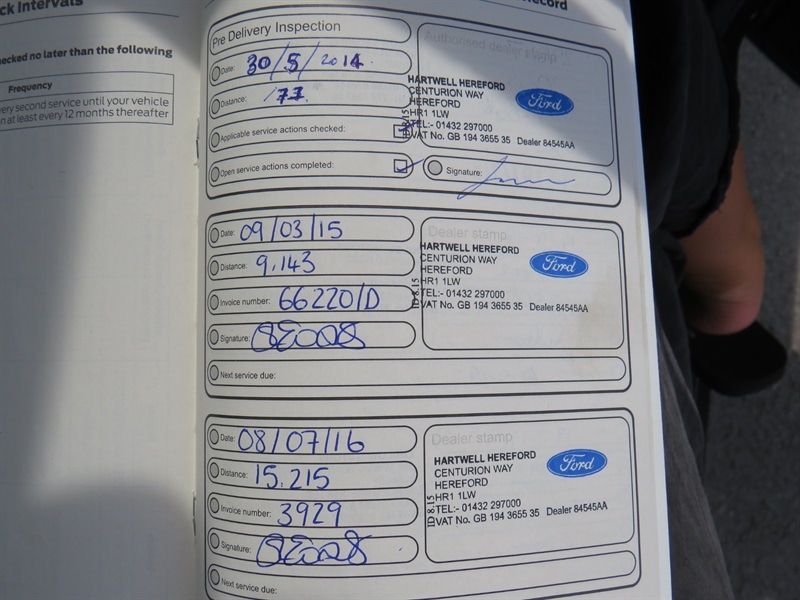 ck Intervals
hecked no later than the following
Frequency
ery second service until your vehicle
n at least every 12 months thereafter
Record
Pre Delivery Inspection
Date: 30/5/2014
Distance: 177
Applicable service actions checked:
Open service actions completed:
Authorised dealer stamp
HARTWELL HEREFORD
CENTURION WAY
HEREFORD
HR1 1LW
TEL:- 01432 297000
VAT No. GB 194 3655 35 Dealer 84545AA
ID 8.15
Ford
Signature:
Date: 09/03/15
Distance: 9.143
Invoice number: 66220/D
Signature:
Next service due:
Dealer stamp
HARTWELL HEREFORD
CENTURION WAY
HEREFORD
HR1 1LW
TEL:- 01432 297000
VAT No. GB 194 3655 35 Dealer 84545AA
ID 8.15
Ford
Date: 08/07/16
Distance: 15.215
Invoice number: 3929
Signature:
Next service due:
Dealer stamp
HARTWELL HEREFORD
CENTURION WAY
HEREFORD
HR1 1LW
TEL:- 01432 297000
VAT No. GB 194 3655 35 Dealer 84545AA
ID 8.15
Ford